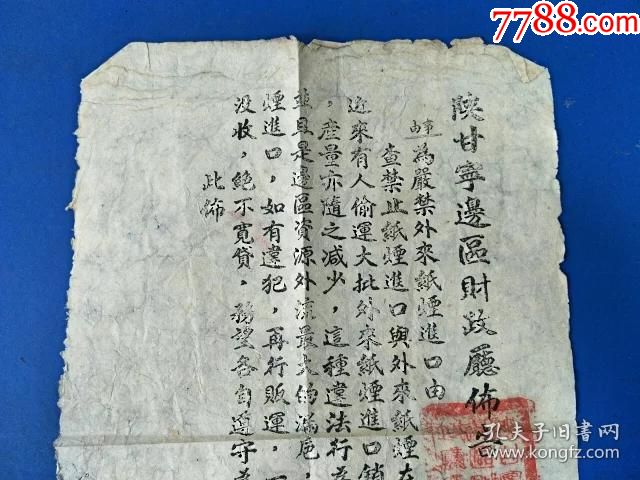 7788.com
陝甘寧邊區財政廳佈告
事由 為嚴禁外來紙煙進口由
查禁止紙煙進口與外來紙煙在
近來有人偷運大批外來紙煙進口銷
，產量亦隨之減少，這種違法行為
並且是邊區資源外流最大的漏卮，
煙進口，如有違犯，再行販運，一
沒收，絕不寬貸，務望各自遵守為
此佈
孔夫子旧书网
kongfz.com